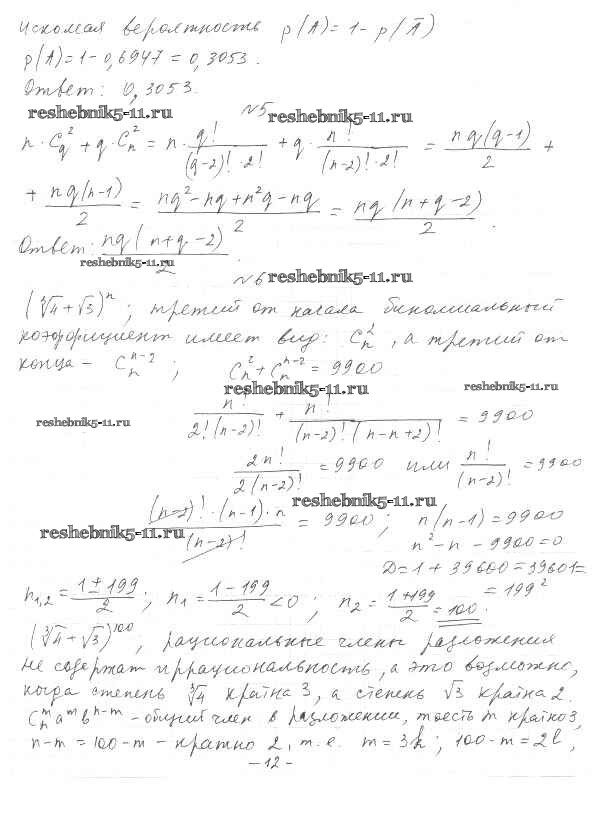 Искомая вероятность p(A) = 1 - p(Ā)
p(A) = 1 - 0,6947 = 0,3053.
Ответ: 0,3053.
reshebnik5-11.ru №5 reshebnik5-11.ru
n · C_q^2 + q · C_n^2 = n · q!/((q-2)! · 2!) + q · n!/((n-2)! · 2!) = nq(q-1)/2 +
+ nq(n-1)/2 = (nq^2 - nq + n^2q - nq)/2 = nq(n+q-2)/2.
Ответ: nq(n+q-2)/2
reshebnik5-11.ru №6 reshebnik5-11.ru
(∛4 + √3)^n ; третий от начала биномиальный
коэффициент имеет вид: C_n^2, а третий от
конца - C_n^{n-2} ; C_n^2 + C_n^{n-2} = 9900
reshebnik5-11.ru reshebnik5-11.ru
reshebnik5-11.ru
n!/(2!(n-2)!) + n!/((n-2)!(n-n+2)!) = 9900
2n!/(2(n-2)!) = 9900 или n!/(n-2)! = 9900
reshebnik5-11.ru
reshebnik5-11.ru
(n-2)! · (n-1) · n/(n-2)! = 9900 ; n(n-1) = 9900
n^2 - n - 9900 = 0
D = 1 + 39600 = 39601 =
= 199^2
n_{1,2} = (1 ± 199)/2 ; n_1 = (1 - 199)/2 < 0 ; n_2 = (1 + 199)/2 = 100.
(∛4 + √3)^{100} ; рациональные члены разложения
не содержат иррациональность, а это возможно,
когда степень ∛4 кратна 3, а степень √3 кратна 2.
C_n^m a^m b^{n-m} - общий член в разложении, то есть m кратно 3,
n-m = 100-m - кратно 2, т.е. m = 3k ; 100-m = 2l ,
-12-